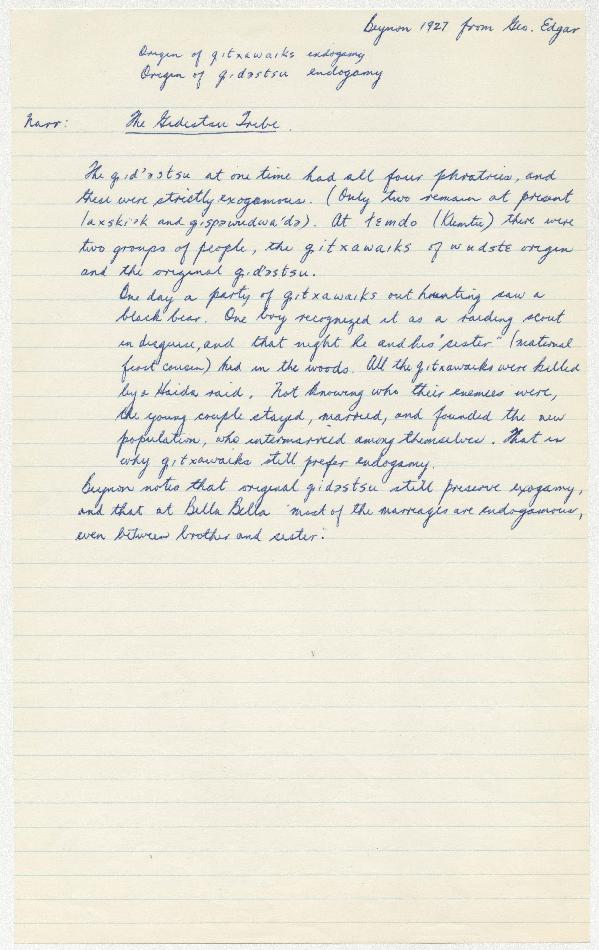 Beynon 1927 from Geo. Edgar
Origin of gitxawaiks endogamy
Origin of gidəstsu endogamy
Narr: The Gidestsu Tribe.
The gid'əstsu at one time had all four phratries, and
these were strictly exogamous. (Only two remain at present
laxski·k and gispəwudwa'də). At łemdo (Klemtu) there were
two groups of people, the gitxawaiks of wudstɛ origin
and the original gid'əstsu.
One day a party of gitxawaiks out hunting saw a
black bear. One boy recognized it as a raiding scout
in disguise, and that night he and his "sister" (maternal
first cousin) hid in the woods. All the gitxawaiks were killed
by a Haida raid. Not knowing who their enemies were,
the young couple stayed, married, and founded the new
population, who intermarried among themselves. That is
why gitxawaiks still prefer endogamy.
Beynon notes that original gidəstsu still preserve exogamy,
and that at Bella Bella "most of the marriages are endogamous,
even between brother and sister."